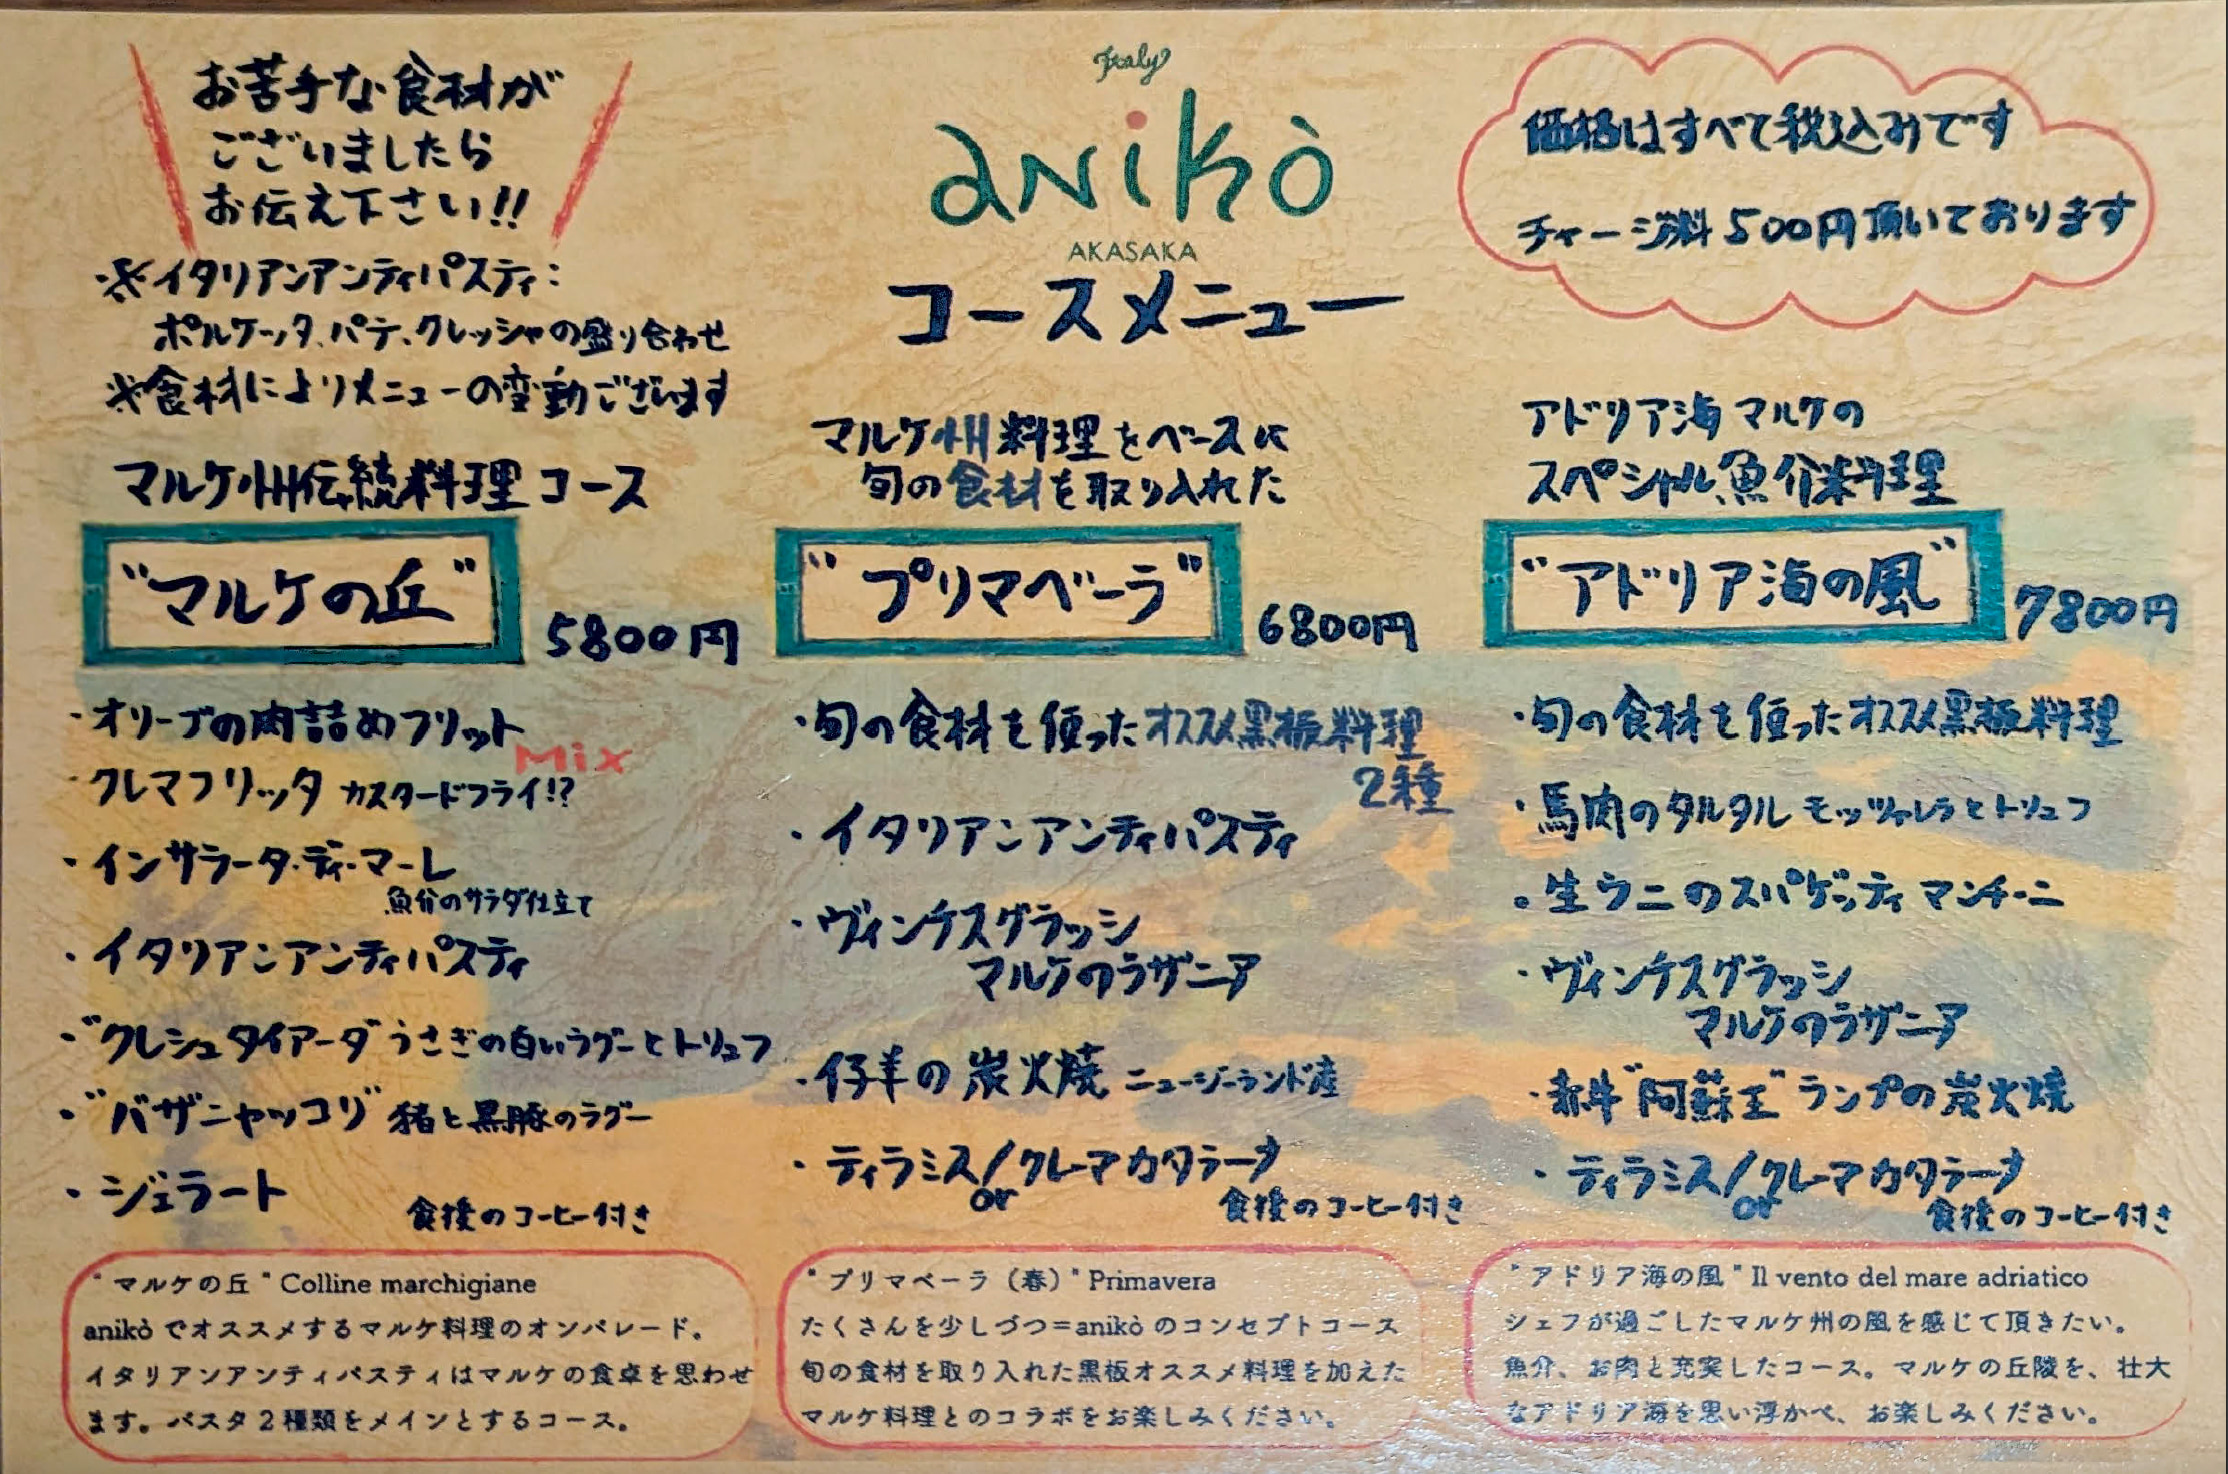 お苦手な食材が
ございましたら
お伝え下さい!!
※イタリアンアンティパスティ:
ポルケッタ、パテ、クレッシャの盛り合わせ
※食材によりメニューの変動ございます
Italy
anikò
AKASAKA
コースメニュー
価格はすべて税込みです
チャージ料500円頂いております
マルケ州伝統料理コース
"マルケの丘"
5800円
・オリーブの肉詰めフリット
Mix
・クレマフリッタ カスタードフライ!?
・インサラータ・ディ・マーレ
魚介のサラダ仕立て
・イタリアンアンティパスティ
・"クレシュタイアーダ"うさぎの白いラグーとトリュフ
・"バザニャッコリ"猪と黒豚のラグー
・ジェラート
食後のコーヒー付き
マルケ州料理をベースに
旬の食材を取り入れた
"プリマベーラ"
6800円
・旬の食材を使ったオススメ黒板料理
2種
・イタリアンアンティパスティ
・ヴィンチスグラッシ
マルケのラザニア
・仔羊の炭火焼 ニュージーランド産
・ティラミス/クレーマカタラーナ
or
食後のコーヒー付き
アドリア海マルケの
スペシャル魚介料理
"アドリア海の風"
7800円
・旬の食材を使ったオススメ黒板料理
・馬肉のタルタル モッツァレラとトリュフ
・生ウニのスパゲッティ マンチーニ
・ヴィンチスグラッシ
マルケのラザニア
・赤牛"阿蘇王"ランプの炭火焼
・ティラミス/クレーマカタラーナ
or
食後のコーヒー付き
"マルケの丘" Colline marchigiane
anikòでオススメするマルケ料理のオンパレード。
イタリアンアンティパスティはマルケの食卓を思わせ
ます。パスタ2種類をメインとするコース。
"プリマベーラ(春)" Primavera
たくさんを少しづつ=anikòのコンセプトコース
旬の食材を取り入れた黒板オススメ料理を加えた
マルケ料理とのコラボをお楽しみください。
"アドリア海の風" Il vento del mare adriatico
シェフが過ごしたマルケ州の風を感じて頂きたい。
魚介、お肉と充実したコース。マルケの丘陵を、壮大
なアドリア海を思い浮かべ、お楽しみください。